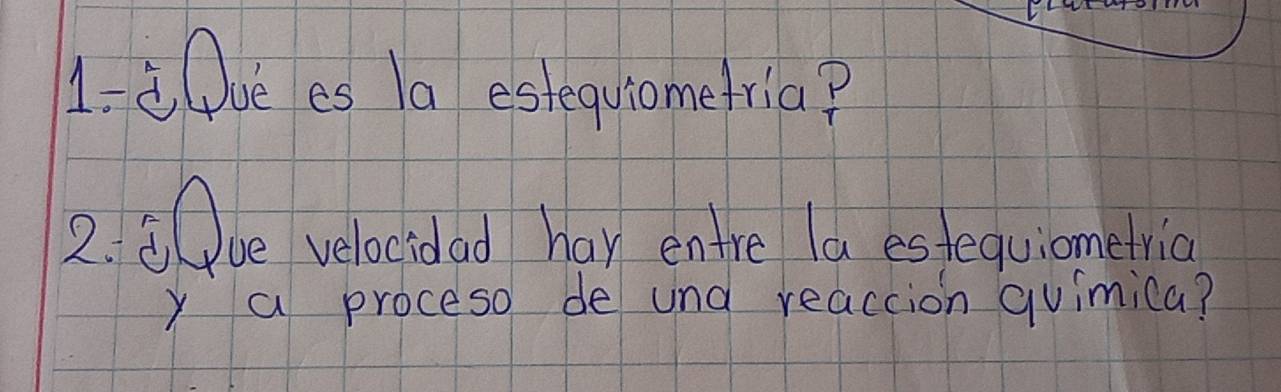 1.- ¿Qué es la estequiometría?
2.- ¿Que velocidad hay entre la estequiometría
y a proceso de una reacción química?